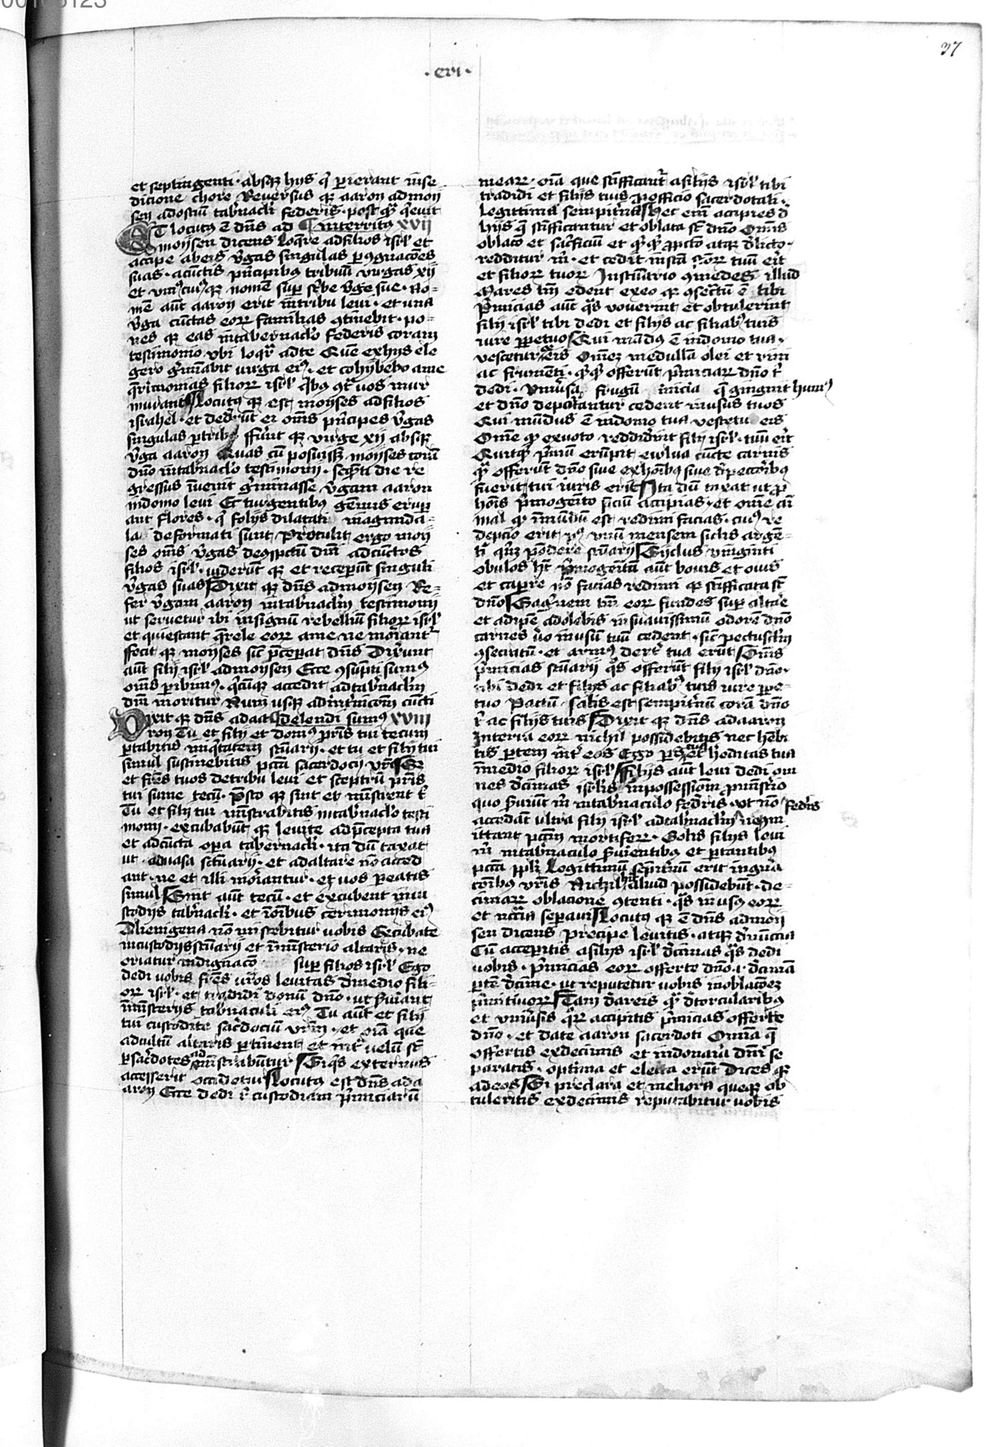 37
· eri ·
et septingenti · absq3 hijs q̄ perierant in se
dicione chore Reversus q3 aaron ad moy
sen ad ostiū tabnacłi federis · postq̄ q̄evit
ET locutꝰ ē dn̄s ad interritꝰ XVII
moysen dicens loq̄re ad filios isrł et
accipe ab eis v̄gas singulas p cognacōes
suas · a cūctis p̄ncipibꝰ tribuū virgas xij
et vniꝰcuiꝰq3 nomē sup sc̄be v̄ge sue · No-
mē aut̄ aaron erit in tribu levi · et una
v̄ga cūctas eorꝝ familias ɔtinebit · po-
nes q3 eas in tabernaclo federis coram
testimonio vbi loqr̄ ad te Quē ex hijs ele
gero ḡminabit virga eiꝰ · et cohibebo a me
q̄rimonias filiorꝝ isrł qibꝰ ɔtra vos mur
murant Locutꝰ q3 est moyses ad filios
israhel · et dedert̄ ei om̄s p̄ncipes v̄gas
singulas p tribꝰ ffūt q3 virge xij absq3
v̄ga aaron Quas cū posuissꝫ moyses corā
dn̄o in tabnaclo testimonij · seq̄nti die re
gressus īvenit ḡminasse v̄gam aaron
in domo levi Et turgentibꝰ gēmis erupāt
aut flores · q̄ folijs dilatatis in amigda-
las deformati sunt Protulit ergo moy
ses om̄s v̄gas de ɔspectu dn̄i ad cūctos
filios isrł · viderūt q3 et receperūt singuli
v̄gas suas Dixit q3 dn̄s ad moysen Re-
fer v̄gam aaron in tabnaclm̄ testimonij
ut servetur ibi in signū rebelliū filiorꝝ isrł
et quiescant q̄rele eorꝝ a me ne moriant̄
ffecit q3 moyses sic̄ p̄ceperat dn̄s Dixerūt
aut̄ filij isrł ad moysen Ecce ɔsūpti sumꝰ
om̄s peribimꝰ · q̄cūq3 accedit ad tabnaclm̄
dn̄i moritur Num usq3 ad int̄nicōm cūcti
Dixit q3 dn̄s ad aa delendi sumꝰ XVIII
ron Tu et filij et domꝰ p̄ris tui tecum
portabitis iniq̄tatem sc̄uarij · et tu et filij tui
simul sustinebitis pctā sacerdocij vr̄i Sꝫ
et fr̄es tuos de tribu levi et sceptrū p̄ris
tui sume tecū · p̄sto q3 sint et minist̄ent t̄
Tu et filij tui minist̄abitis in tabnaclo testi
monij · excubabūt q3 levite ad p̄cepta tua
et ad cūcta opa tabernacli · ita dū taxat
ut ad vasa sc̄uarij · et ad altare nō acced
ant · ne et illi moriantur · et vos pereatis
simul Sint aut̄ tecū · et excubent in cu
stodijs tabnacli · et ī oībus cerimonijs eiꝰ
Alienigena nō miscebitur vobis Excubate
in custodijs sc̄uarij et ī minsterio altaris · ne
oriatur indignacō sup filios isrł Ego
dedi vobis fr̄es vr̄os levitas de medio fili-
orꝝ isrł · et tradidi donū dn̄o · ut serviant
in minsterijs tabnaculi eiꝰ Tu aut̄ et filij
tui custodite sac̄dociū vr̄m · et oīa que
ad cultū altaris ptinent et intra velū sūt
p sac̄dotes adminstrabūtur Siq̄s externus
accesserit occidetur Locutꝰ est dn̄s ad a
aron Ecce dedi t̄ custodiam p̄miciarū
mearꝝ · oīa que sc̄ificant̄ a filijs isrł tibi
tradidi et filijs tuis p officio sacerdotali ·
legittima sempiterna hec ergo accipies de
hijs q̄ sc̄ificantur et oblata sūt dn̄o Om̄is
oblacō et sac̄ficiū et q̄cq̄ p pctō atq3 delicto ·
redditur m̄ · et cedit in sc̄a sc̄orꝝ tuū erit
et filiorꝝ tuorꝝ In sc̄uario ɔmedes illud
Mares tm̄ edent ex eo q3 ɔsecratū ē tibi
P̄micias aut̄ q̄s voverint et obtulerint
filij isrł tibi dedi et filijs ac filiabꝰ tuis
iure ppetuo Qui mūdus ē in domo tua ·
vescetur eis Om̄ez medullā olei et vini
ac frumēti · q̄cq̄ offerūt p̄miciarꝝ dn̄o t̄
dedi · Vniversa frugū inicia q̄ gingnit humꝰ
et dn̄o deportantur cedent in usus tuos
Qui mūdus ē in domo tua vescetur eis
Om̄e q̄ ex voto reddiderīt filij isrł · tuū erit
Quitq̄ p̄mū erūpit e vulva cūcte carnis
q̄ offerūt dn̄o sive ex hoībus sive de pecoribꝰ
fuerit · tui iuris erit Ita dū taxat ut p
hoīs p̄mogenito p̄ciū accipias · et om̄e ani
mal q̄ inmūdū est redimi facias · cuiꝰ re
depcio erit pꝰ vnū mensem siclis argē-
ti qinq3 pōdere sc̄uarij Siclus viginti
obulos hꝫ P̄mogenitū aut̄ bovis et ovis
et capre nō facias redimi q3 sc̄ificata sūt
dn̄o Sagvinem tm̄ eorꝝ fūdes sup altare
et adipē adolebis in suavissimū odorē dn̄o
carnes v̄o in usū tuū cedent · sic̄ pectusclm̄
ɔsecratū · et armꝰ dext̄ tua erūt Om̄s
p̄micias sc̄uarij q̄s offerūt filij isrł dn̄o ·
tibi dedi et filijs ac filiabꝰ tuis iure ppe-
tuo Pactū salis est sempit̄nū corā dn̄o
t̄ ac filijs tuis Dixit q3 dn̄s ad aaron
In terra eorꝝ nichil possidebitis nec habebi
tis ptem int̄ eos Ego pars et hereditas tua
in medio filiorꝝ isrł ffilijs aut̄ levi dedi om
nes decimas isrł'is in possessionem p minst̄io
quo serviūt m̄ in tabnaculo fed̄is · ut nō fed̄is
accedāt ultra filij isrł ad tabnaclm̄ nec ɔm
ittant pctm̄ mortiferꝝ · Solis filijs levi
m̄ in tabnaculo servientibus et portantibus
pctā ppli Legittimū sempit̄nū erit in gn̄a
cōibus vr̄is Nichil aliud possidebūt · de-
cimarꝝ oblacione ɔtenti · q̄s in usꝰ eorꝝ
et nccīa sepavi Locutꝰ q3 ē dn̄s ad moy
sen dicens Precipe levitis · atq3 denūcia
Cū acceperitis a filijs isrł decimas q̄s dedi
vobis · p̄micias eorꝝ offerte dn̄o · i · decimā
ptē decime · ut reputetur vobis in oblacōez
p̄mitivorꝝ Tam de areis q̄ de torcularibꝰ
et universis qorꝝ accipitis p̄micias offerte
dn̄o · et date aaron sacerdoti Omnia q̄
offertis ex decimis et in donaria dn̄i se
paratis · optima et electa erūt Dices q3
ad eos Si preclara et meliora queq3 ob
tuleritis ex decimis reputabitur vobis